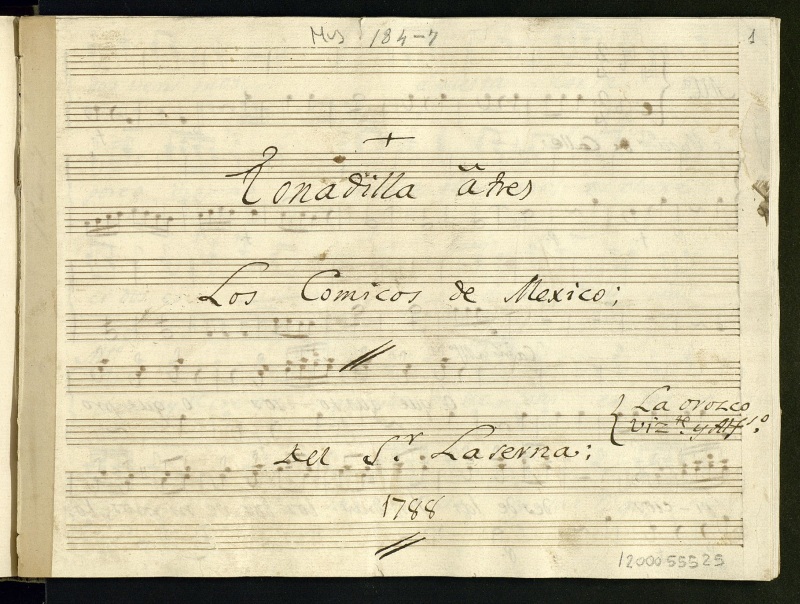 Mus 184-7
1
Tonadilla â tres
Los Comicos de Mexico;
La orozco
viz.te y Alf.so
Del S.r Laserna;
1788
1200055525